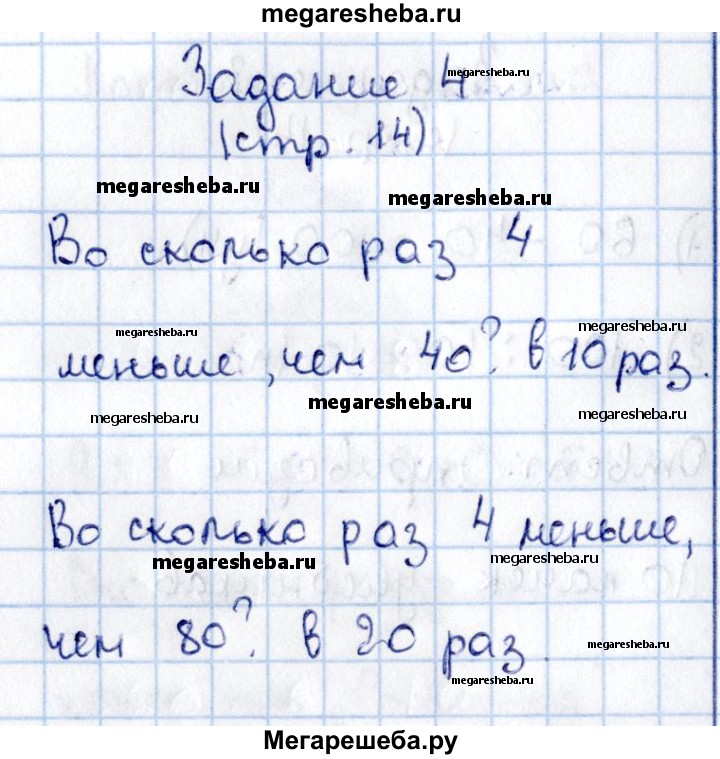 megaresheba.ru
Задание 4
megaresheba.ru
(стр. 14)
megaresheba.ru
megaresheba.ru
Во сколько раз 4
megaresheba.ru
megaresheba.ru
меньше, чем 40? в 10 раз.
megaresheba.ru
megaresheba.ru
megaresheba.ru
Во сколько раз 4 меньше,
megaresheba.ru
megaresheba.ru
чем 80? в 20 раз.
megaresheba.ru
megaresheba.ru
Мегарешеба.ру